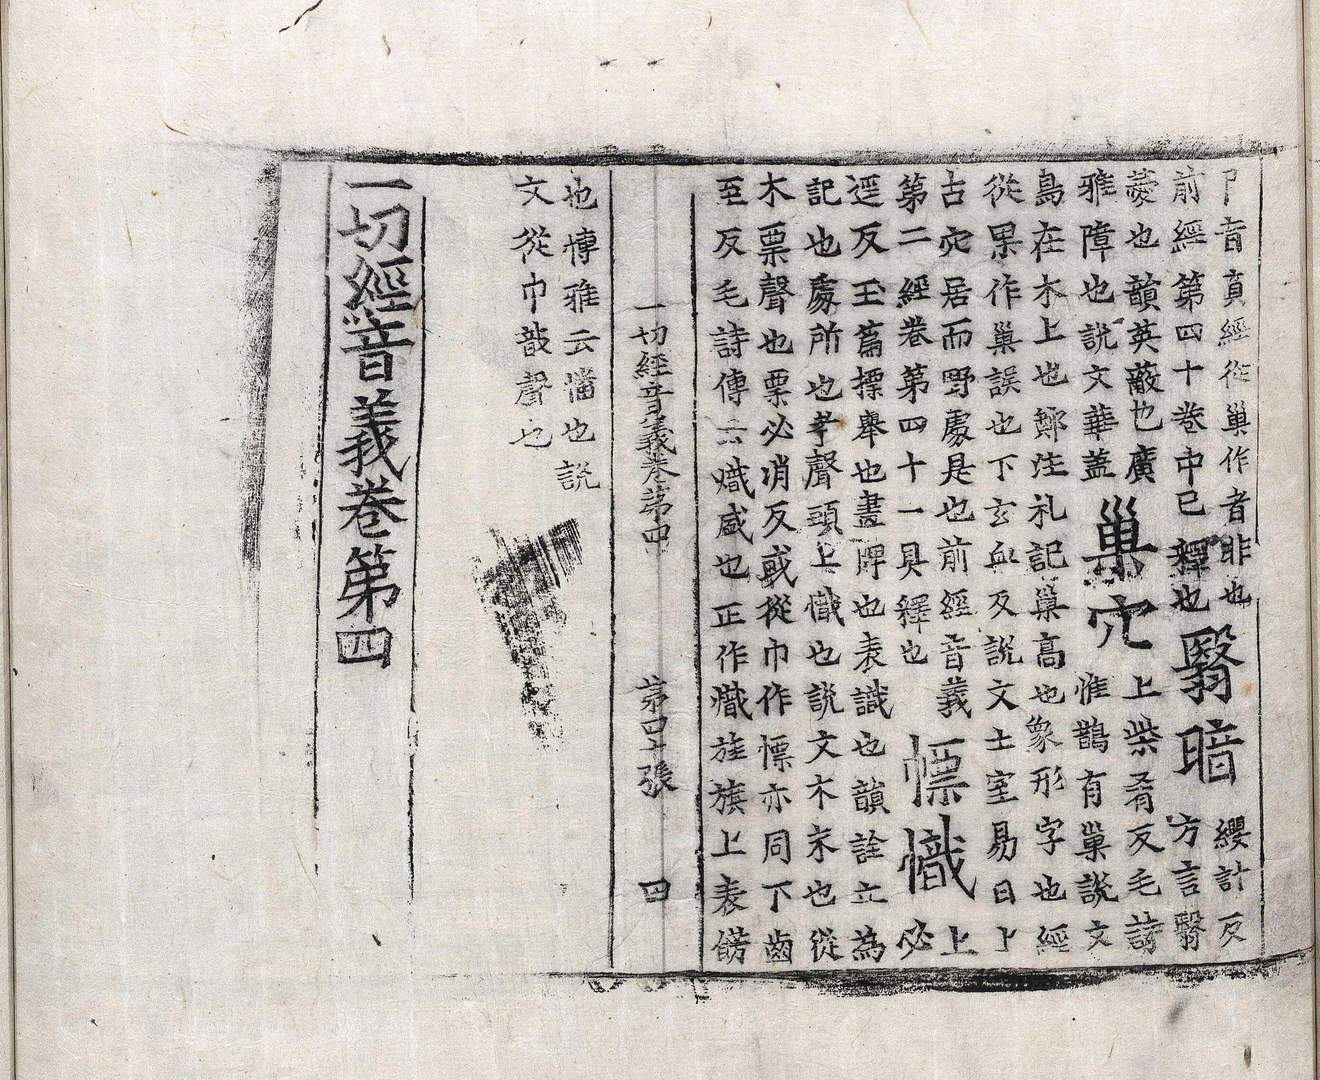 卩音真經從巢作者非也
前經第四十卷中已釋也
翳暗
纓計反
方言翳
薆也韻英蔽也廣
雅障也說文華蓋
巢穴
上柴肴反毛詩
惟鵲有巢說文
鳥在木上也鄭注礼記巢高也象形字也經
從果作巢誤也下玄血反說文土室易曰上
古穴居而野處是也前經音義
第二經卷第四十一具釋也
幖幟
上
必
遥反玉篇摽舉也畫牌也表識也韻詮立為
記也處所也孝聲頭上幟也說文木末也從
木票聲也票必消反或從巾作幖亦同下齒
至反毛詩傳云熾盛也正作幟旌旗上表餝
一切經音義卷第四 第四十張 四
也博雅云幡也說
文從巾戠聲也
一切經音義卷第四